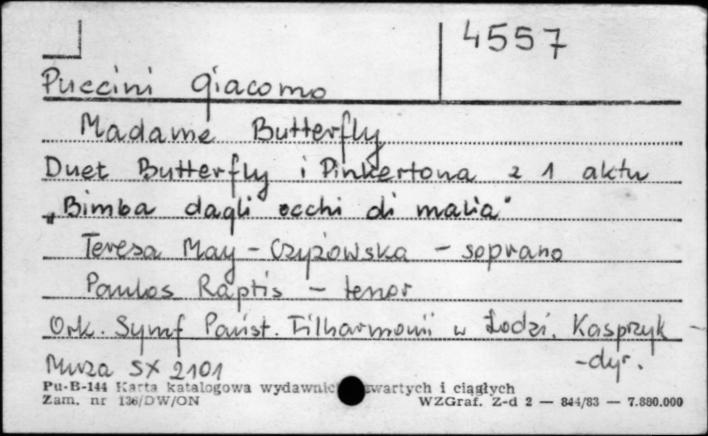 4557
Puccini Giacomo
Madame Butterfly
Duet Butterfly i Pinkertona z 1 aktu
„Bimba dagli occhi di malia"
Teresa May-Czyżowska - soprano
Paulos Raptis - tenor
Ork. Symf Państ. Filharmonii w Łodzi. Kasprzyk -
-dyr.
Muza SX 2101
Pu-B-144 Karta katalogowa wydawnic wartych i ciągłych
Zam. nr 136/DW/ON WZGraf. Z-d 2 — 844/83 — 7.880.000